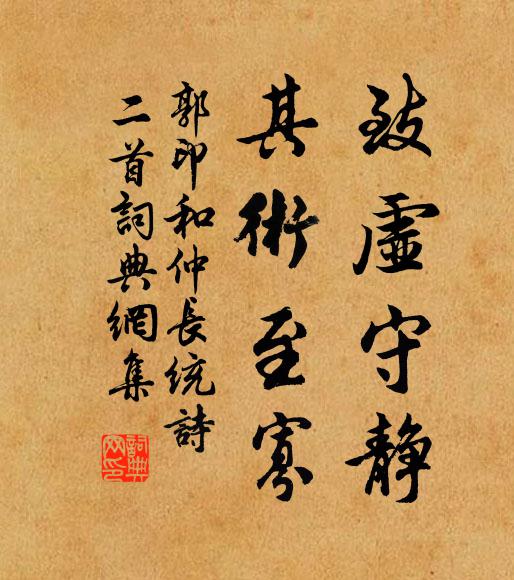 致虛守靜
其術至寡
郭印和仲長統詩
二首詞典網集
詞典網印